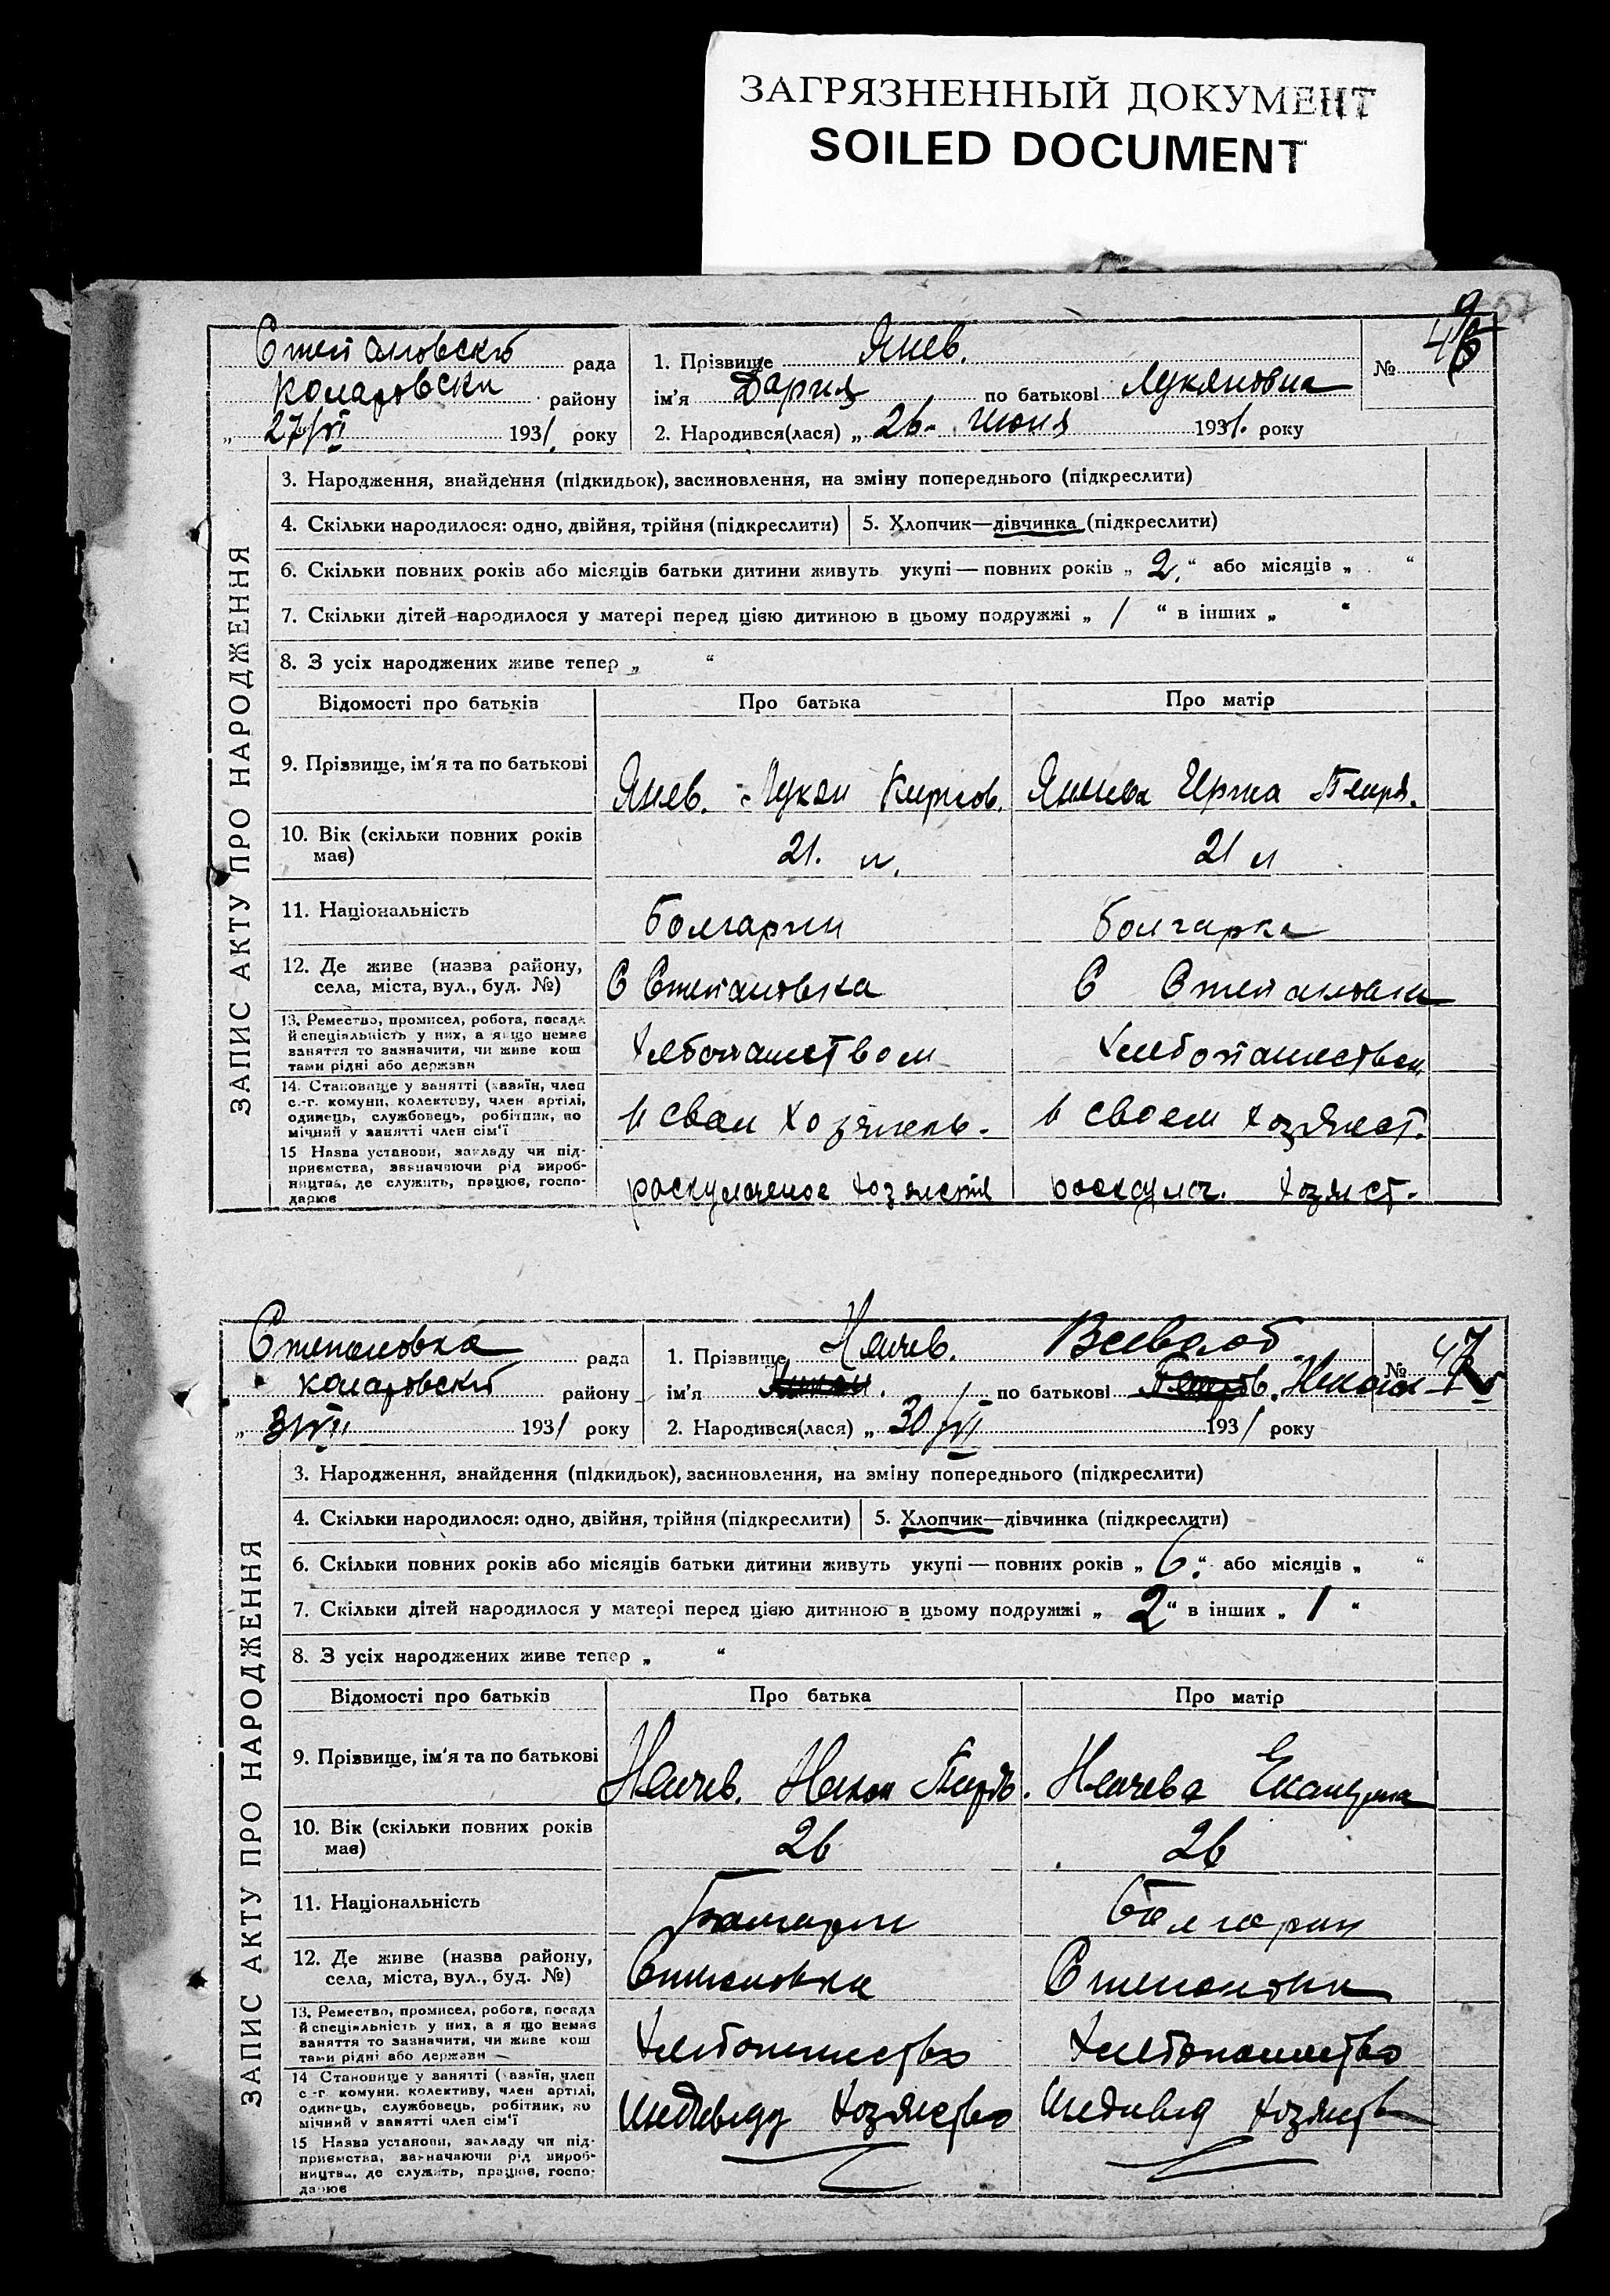 ЗАГРЯЗНЕННЫЙ ДОКУМЕНТ
SOILED DOCUMENT
ЗАПИС АКТУ ПРО НАРОДЖЕННЯ
рада
Коларовски району
„ 27/VI 1931. року
1. Прізвище Янев.
ім'я Дария по батькові Лукяновна
2. Народився(лася) „ 26. июня 1931. року
№
3. Народження, знайдення (підкидьок), засиновлення, на зміну попереднього (підкреслити)
4. Скільки народилося: одно, двійня, трійня (підкреслити) 5. Хлопчик—дівчинка (підкреслити)
6. Скільки повних років або місяців батьки дитини живуть укупі—повних років „ 2. “ або місяців „ “
7. Скільки дітей народилося у матері перед цією дитиною в цьому подружжі „ 1 “ в інших „ “
8. З усіх народжених живе тепер „ “
Відомості про батьків Про батька Про матір
9. Прізвище, ім'я та по батькові Янев. Лукян
10. Вік (скільки повних років має) 21. л. 21 л
11. Національність болгарин болгарка
12. Де живе (назва району, села, міста, вул., буд. №) С Степановка С Степановка
13. Ремество, промисел, робота, посада й спеціяльність у них, а якщо немає заняття то зазначити, чи живе коштами рідні або держави хлебопашеством
14. Становище у занятті (хазяїн, член с.-г. комуни, колективу, член артілі, одинець, службовець, робітник, помічний у занятті член сім'ї в своем
15 Назва установи, закладу чи підприємства, зазначаючи рід виробництва, де служить, працює, господарює
ЗАПИС АКТУ ПРО НАРОДЖЕННЯ
Степановка рада
Коларовский району
„ 3/VII 1931 року
1. Прізвище Нейчев. Всеволод
ім'я по батькові
2. Народився(лася) „ 30/VI 1931 року
№ 47
3. Народження, знайдення (підкидьок), засиновлення, на зміну попереднього (підкреслити)
4. Скільки народилося: одно, двійня, трійня (підкреслити) 5. Хлопчик—дівчинка (підкреслити)
6. Скільки повних років або місяців батьки дитини живуть укупі—повних років „ 6. “ або місяців „ “
7. Скільки дітей народилося у матері перед цією дитиною в цьому подружжі „ 2 “ в інших „ 1 “
8. З усіх народжених живе тепер „ “
Відомості про батьків Про батька Про матір
9. Прізвище, ім'я та по батькові Нейчев. Нейчева
10. Вік (скільки повних років має) 26 26
11. Національність
12. Де живе (назва району, села, міста, вул., буд. №) Степановка Степановка
13. Ремество, промисел, робота, посада й спеціяльність у них, а якщо немає заняття то зазначити, чи живе коштами рідні або держави хлебопашество хлебопашество
14 Становище у занятті (хазяїн, член с.-г. комуни, колективу, член артілі, одинець, службовець, робітник, помічний у занятті член сім'ї
15 Назва установи, закладу чи підприємства, зазначаючи рід виробництва, де служить, працює, господарює